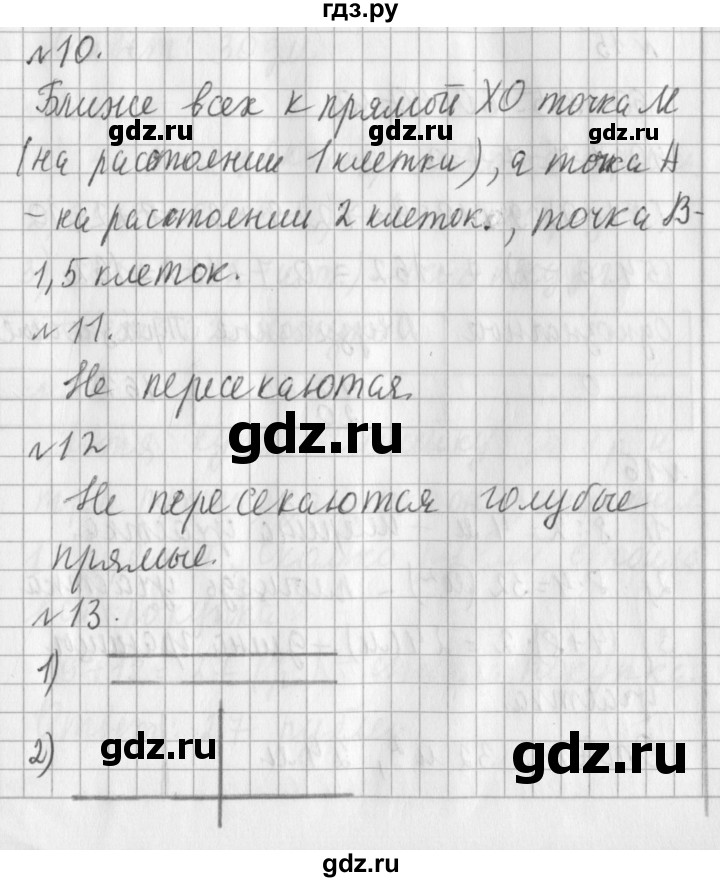 гдз.ру
№10.
Ближе всех к прямой ХО точка М
gdz.ru gdz.ru
(на расстоянии 1 клетки), а точка А
- на расстоянии 2 клеток., точка В-
1,5 клеток.
№11.
Не пересекаются.
gdz.ru
№12
Не пересекаются голубые
прямые.
№13.
1)
2) gdz.ru gdz.ru
gdz.ru